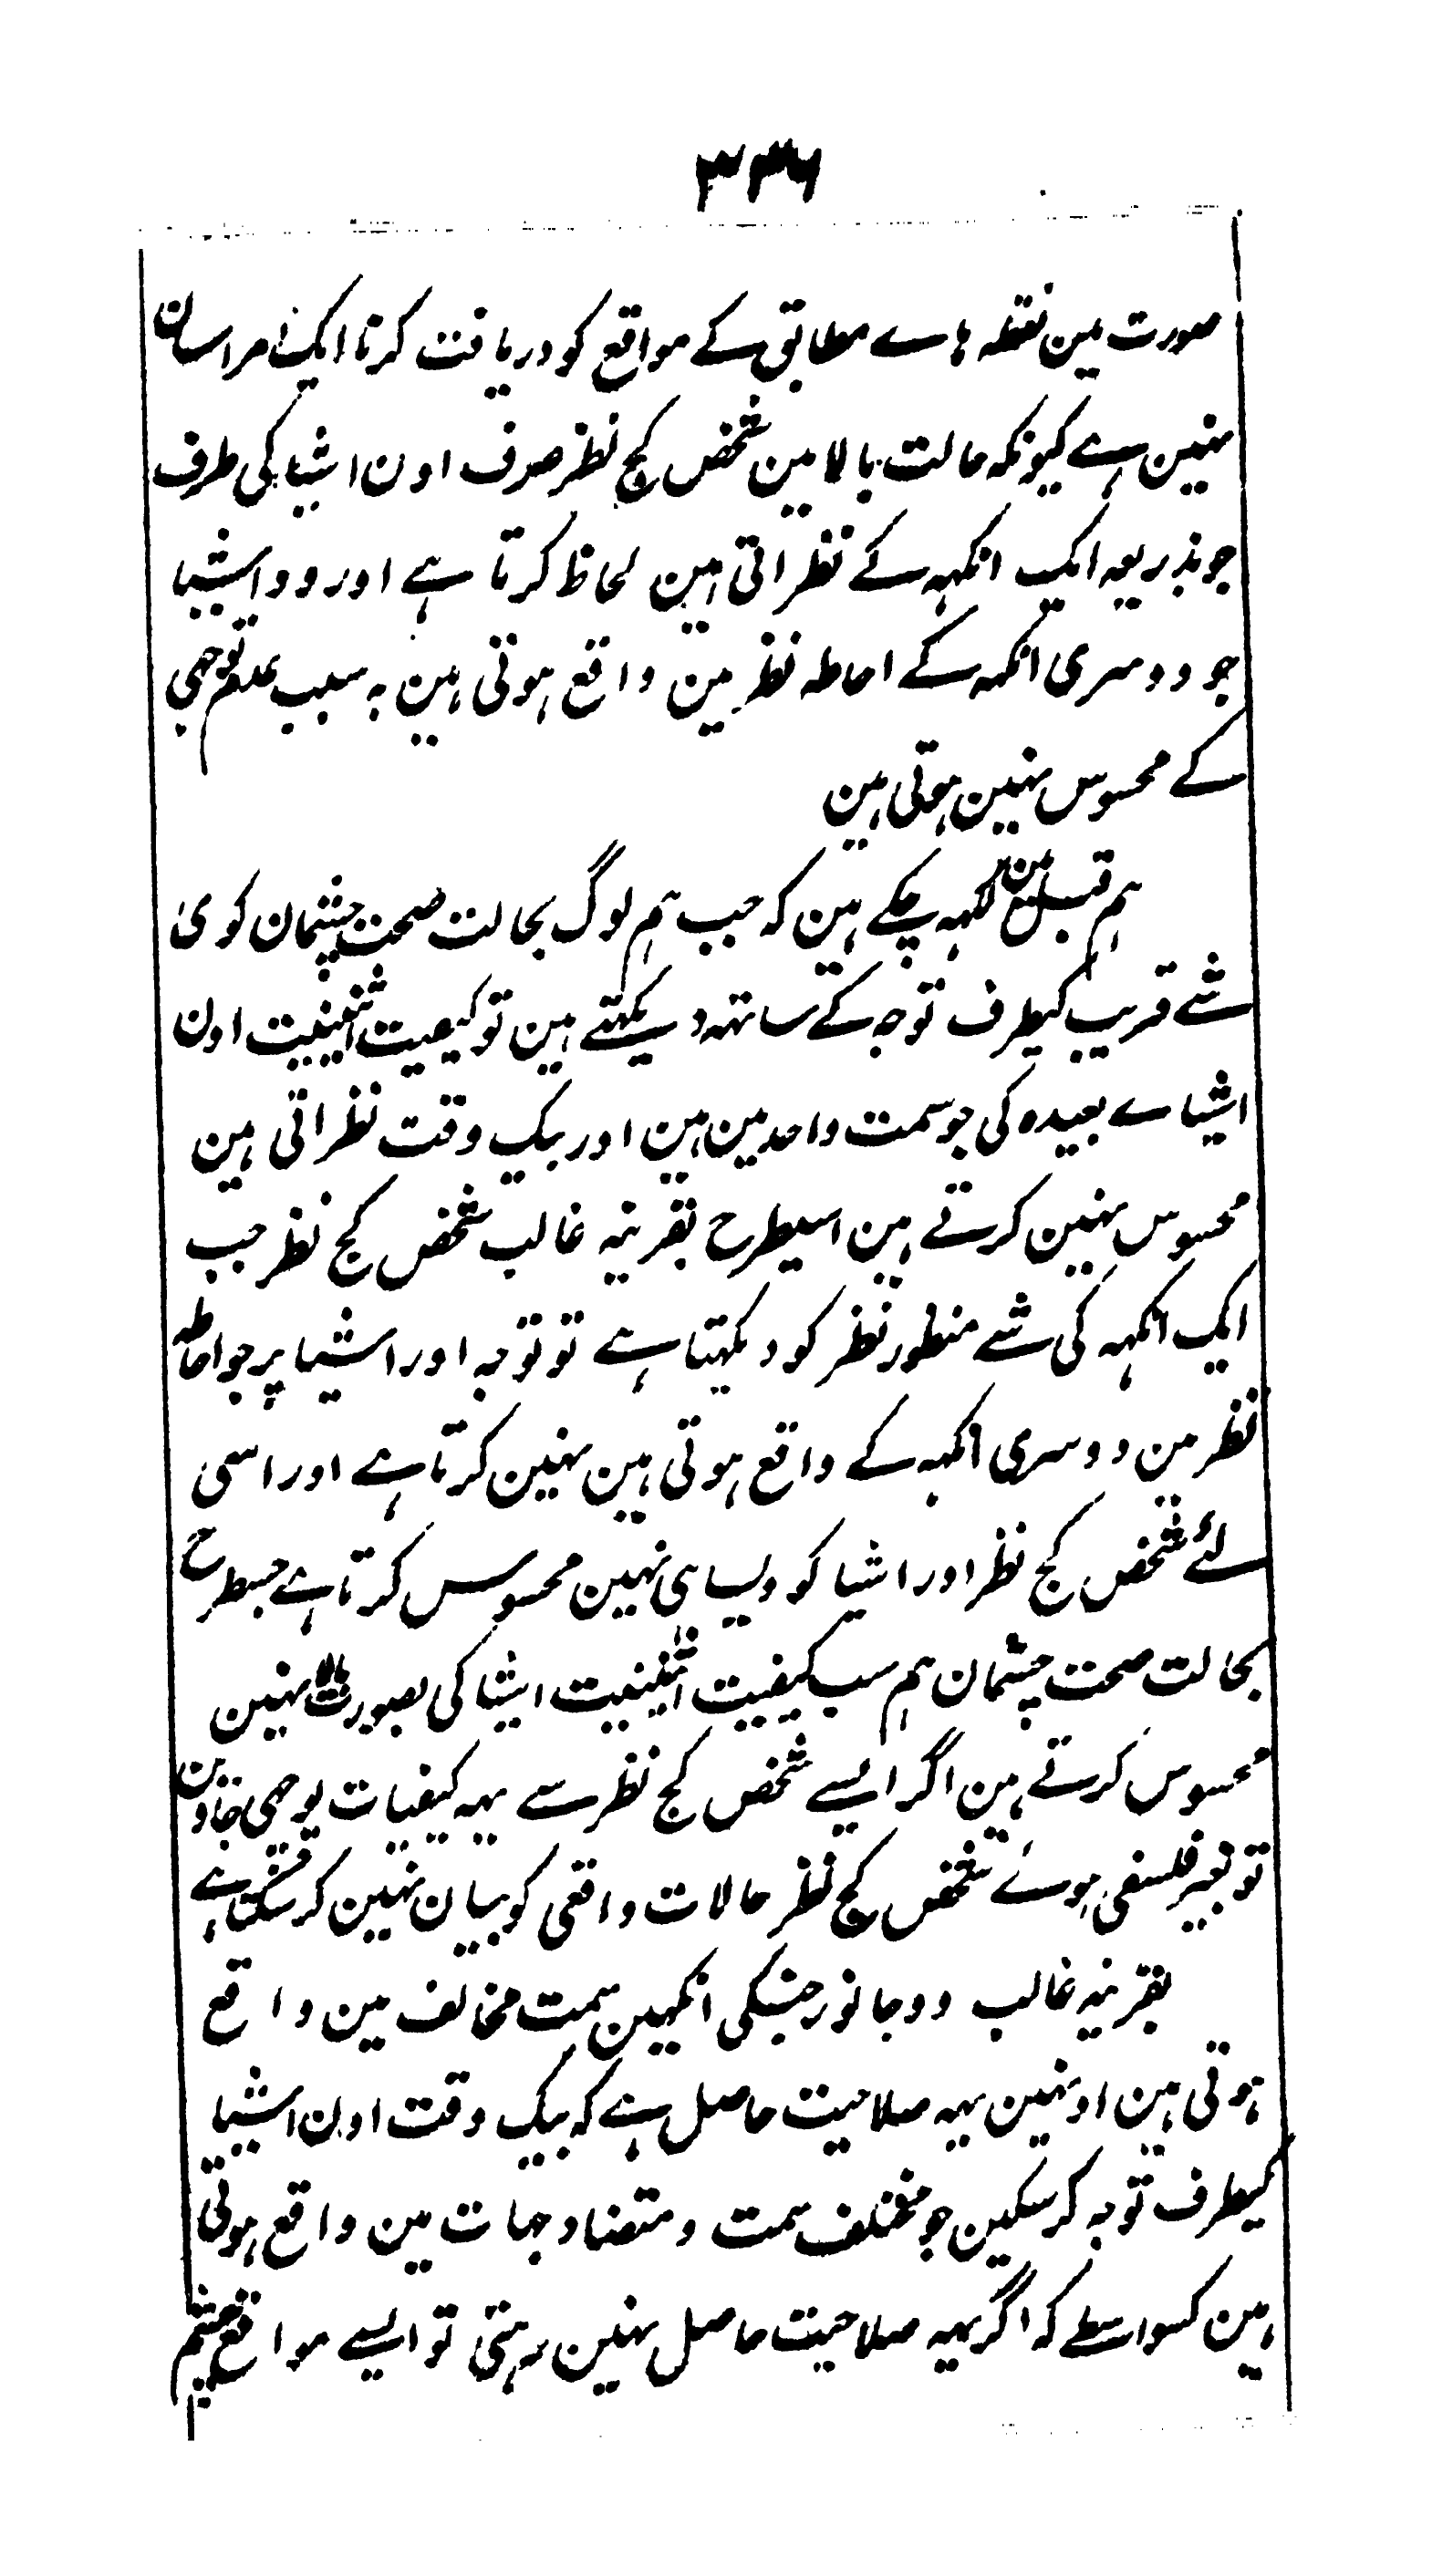 ۳۳۶
صورت مین نقطہ ہاے مطابق کے مواقع کو دریافت کرنا ایک امر اسان
نہین ہے کیونکہ حالت بالا مین شخص کج نظر صرف اون اشیا کی طرف
جو بذریعہ ایک انکہہ کے نظر اتی ہین لحاظ کرتا ہے اور وہ اشیا
جو دوسری انکہہ کے احاطہ نظر مین واقع ہوتی ہین بہ سبب عدم توجہی
کے محسوس نہین ہوتی ہین
ہم قبل مین کہہ چکے ہین کہ جب ہم لوگ بحالت صحت چشمان کوئی
شے قریب کیطرف توجہ کے ساتہہ دیکہتے ہین تو کیفیت اثنینیت اون
اشیاے بعیدہ کی جو سمت واحد مین ہین اور بیک وقت نظر اتی ہین
محسوس نہین کرتے ہین اسیطرح بقرینہ غالب شخص کج نظر جب
ایک انکہہ کی شے منظور نظر کو دیکہتا ہے تو توجہ اور اشیا پر جو احاطہ
نظر مین دوسری انکہہ کے واقع ہوتی ہین نہین کرتا ہے اور اسی
لئے شخص کج نظر اور اشیا کو ویسا ہی نہین محسوس کرتا ہے جسطرح
بحالت صحت چشمان ہم سب کیفیت اثنینیت اشیا کی بصورت بالا نہین
محسوس کرتے ہین اگر ایسے شخص کج نظر سے یہہ کیفیات پوچہی جاوین
تو بغیر فلسفی ہوئے شخص کج نظر حالات واقعی کو بیان نہین کر سکتا ہے
بقرینہ غالب وہ جانور جنکی انکہین سمت مخالف مین واقع
ہوتی ہین اونہین یہہ صلاحیت حاصل ہے کہ بیک وقت اون اشیا
کیطرف توجہ کر سکین جو مختلف سمت و متضاد جہات مین واقع ہوتی
ہین کسواسطے کہ اگر یہہ صلاحیت حاصل نہین رہتی تو ایسے مواقع چشم